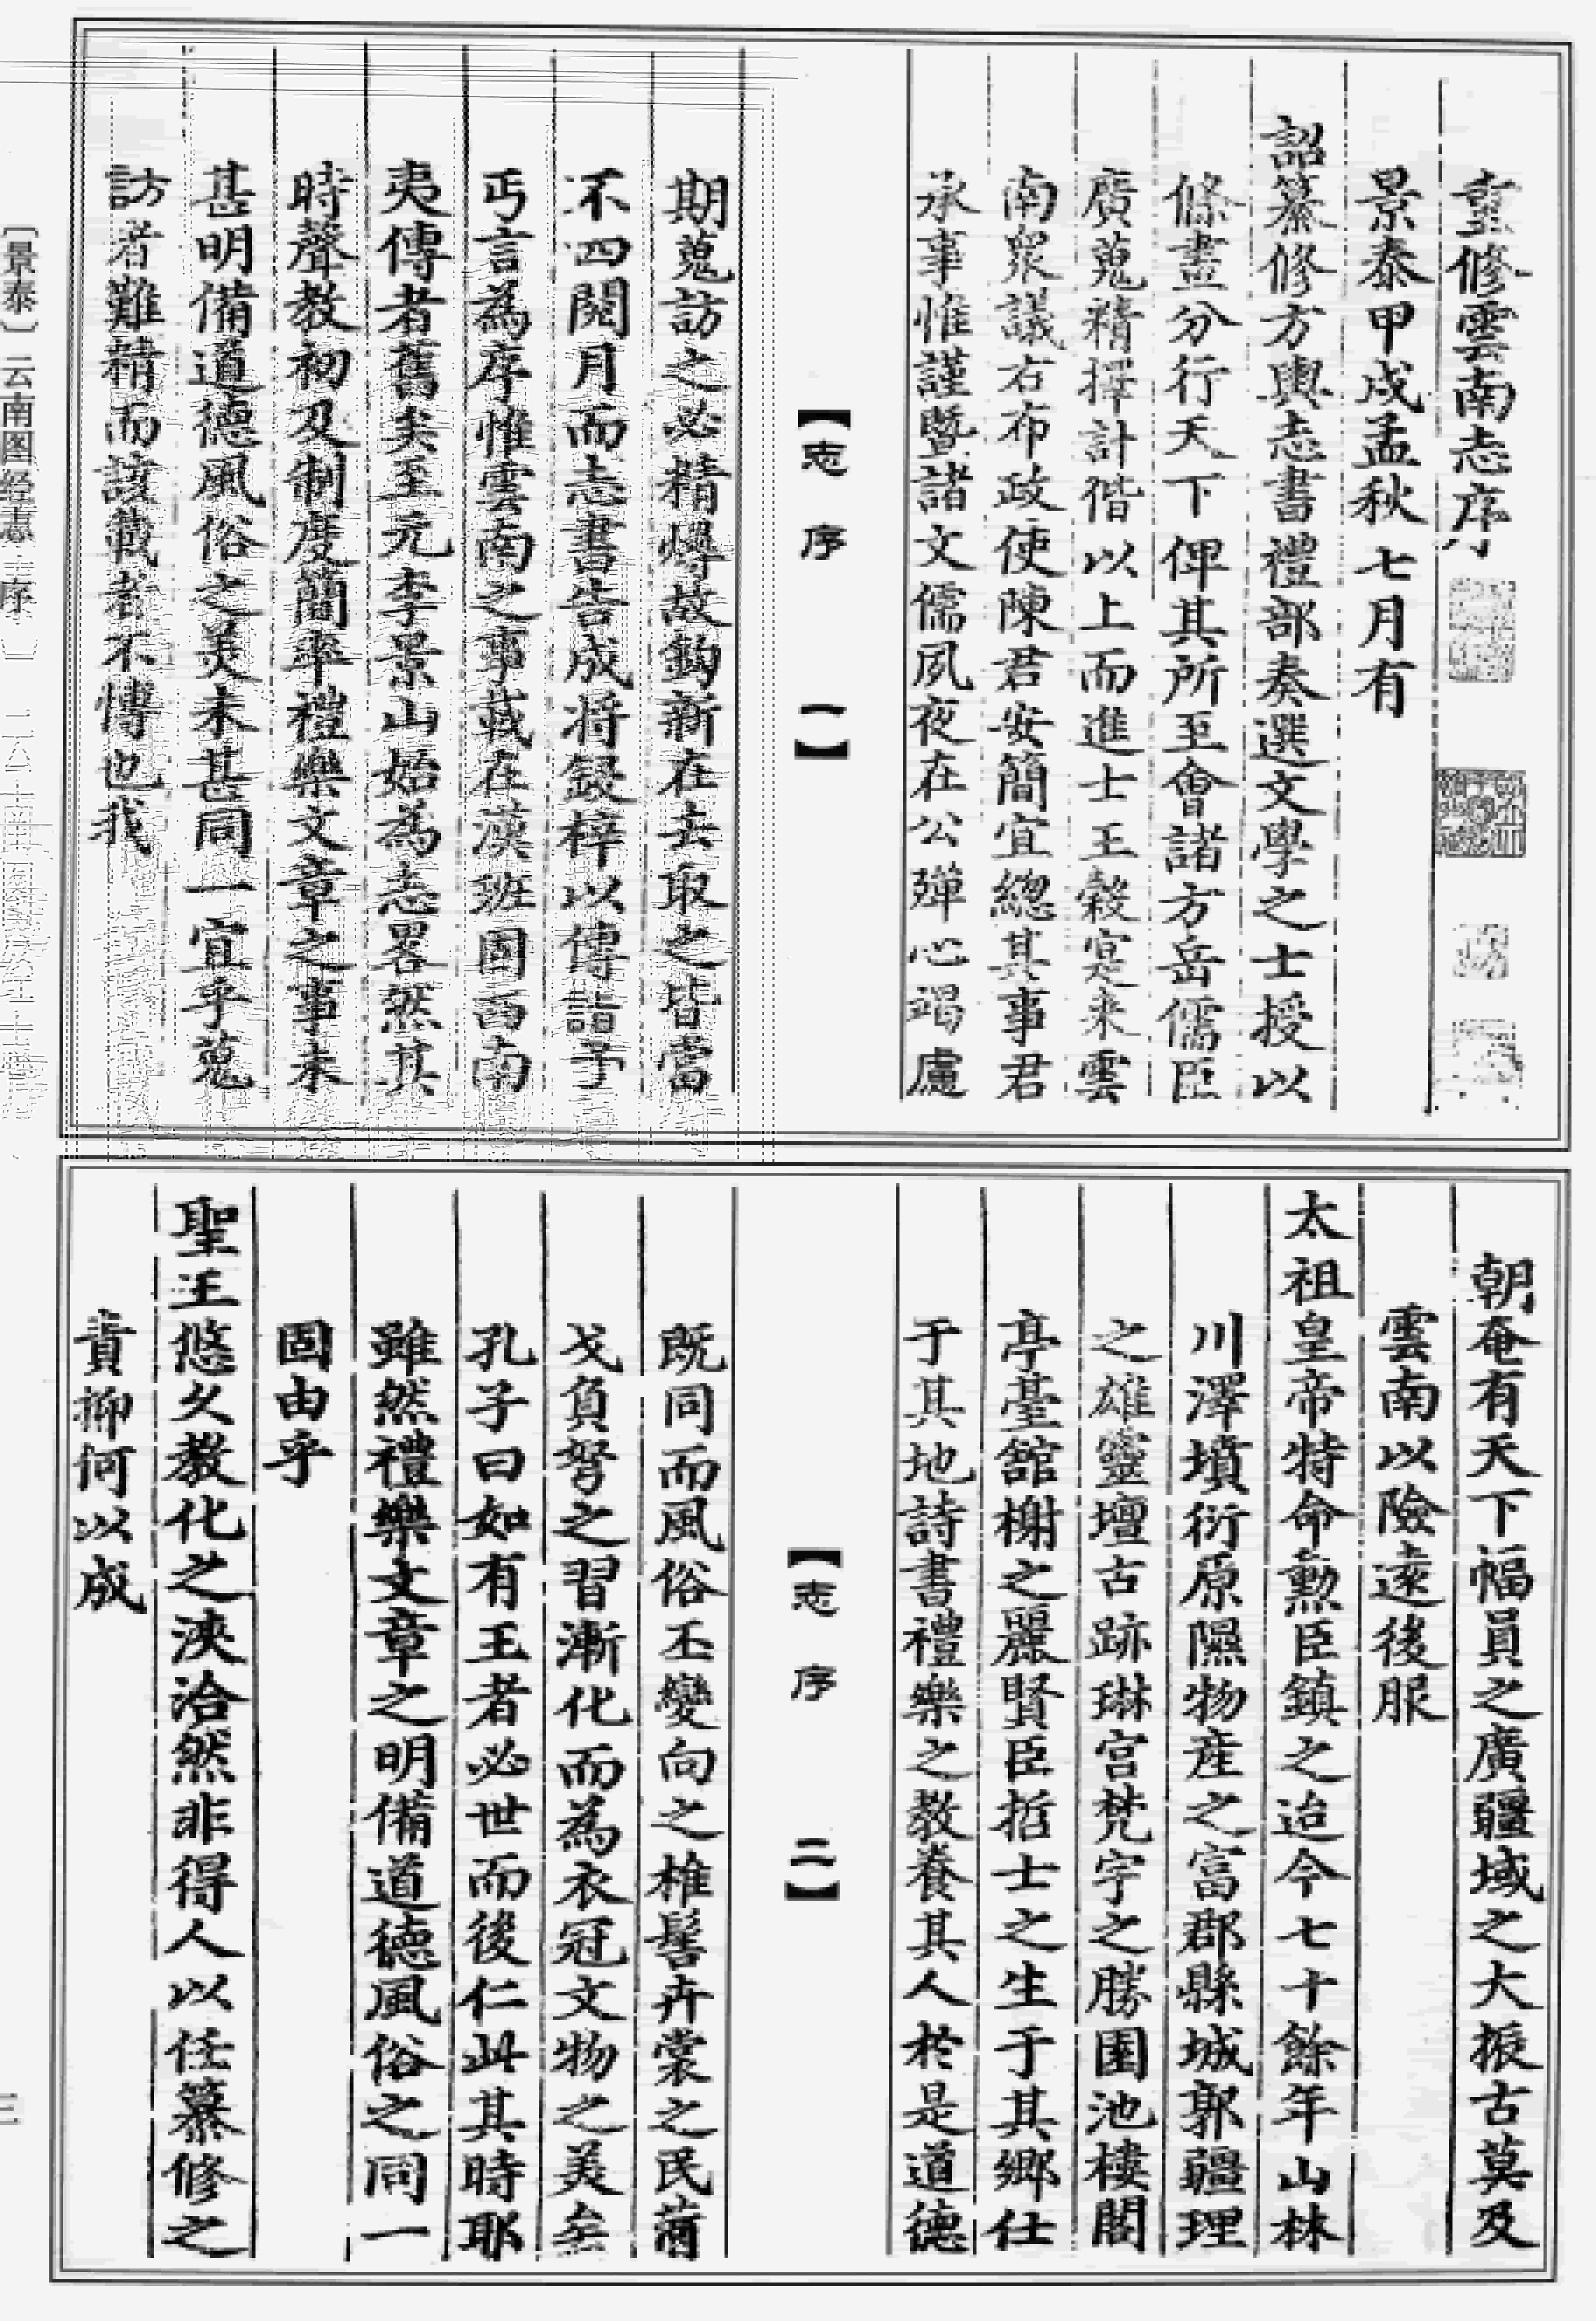 重修雲南志序
景泰甲戍孟秋七月有
詔纂修方輿志書禮部奏選文學之士授以
條畫分行天下俾其所至會諸方岳儒臣
廣蒐精擇計偕以上而進士王榖寔来雲
南衆議右布政使陳君安簡宜總其事君
承事惟謹曁諸文儒夙夜在公殫心竭慮
【志序 一】
期蒐訪之必精㷫故鈎新在去取之皆當
不四閱月而志書告成将鋟梓以傳詣予
丐言為序惟雲南之事載在漢班固西南
夷傳者舊矣至元李景山始為志畧然其
時聲教初及制度簡率禮樂文章之事未
甚明備道德風俗之美未甚同一宜乎蒐
訪者難精而該載者不愽也我
〔景泰〕云南图经志 序
朝奄有天下幅員之廣疆域之大振古莫及
雲南以險遠後服
太祖皇帝特命勲臣鎮之迨今七十餘年山林
川澤墳衍原隰物産之富郡縣城郭疆理
之雄靈壇古跡琳宫梵宇之勝園池樓閣
亭臺舘榭之麗賢臣哲士之生于其鄉仕
于其地詩書禮樂之教養其人於是道德
【志序 二】
既同而風俗丕變向之椎髻卉裳之民薾
戈負弩之習漸化而為衣冠文物之美矣
孔子曰如有王者必世而後仁此其時耶
雖然禮樂文章之明備道德風俗之同一
固由乎
聖王悠久教化之浹洽然非得人以任纂修之
責抑何以成
三